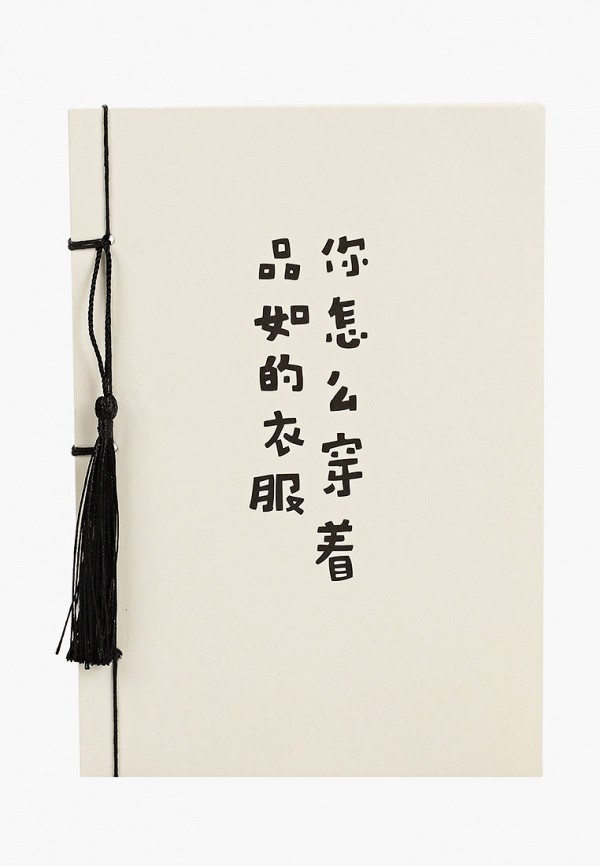 你怎么穿着
品如的衣服